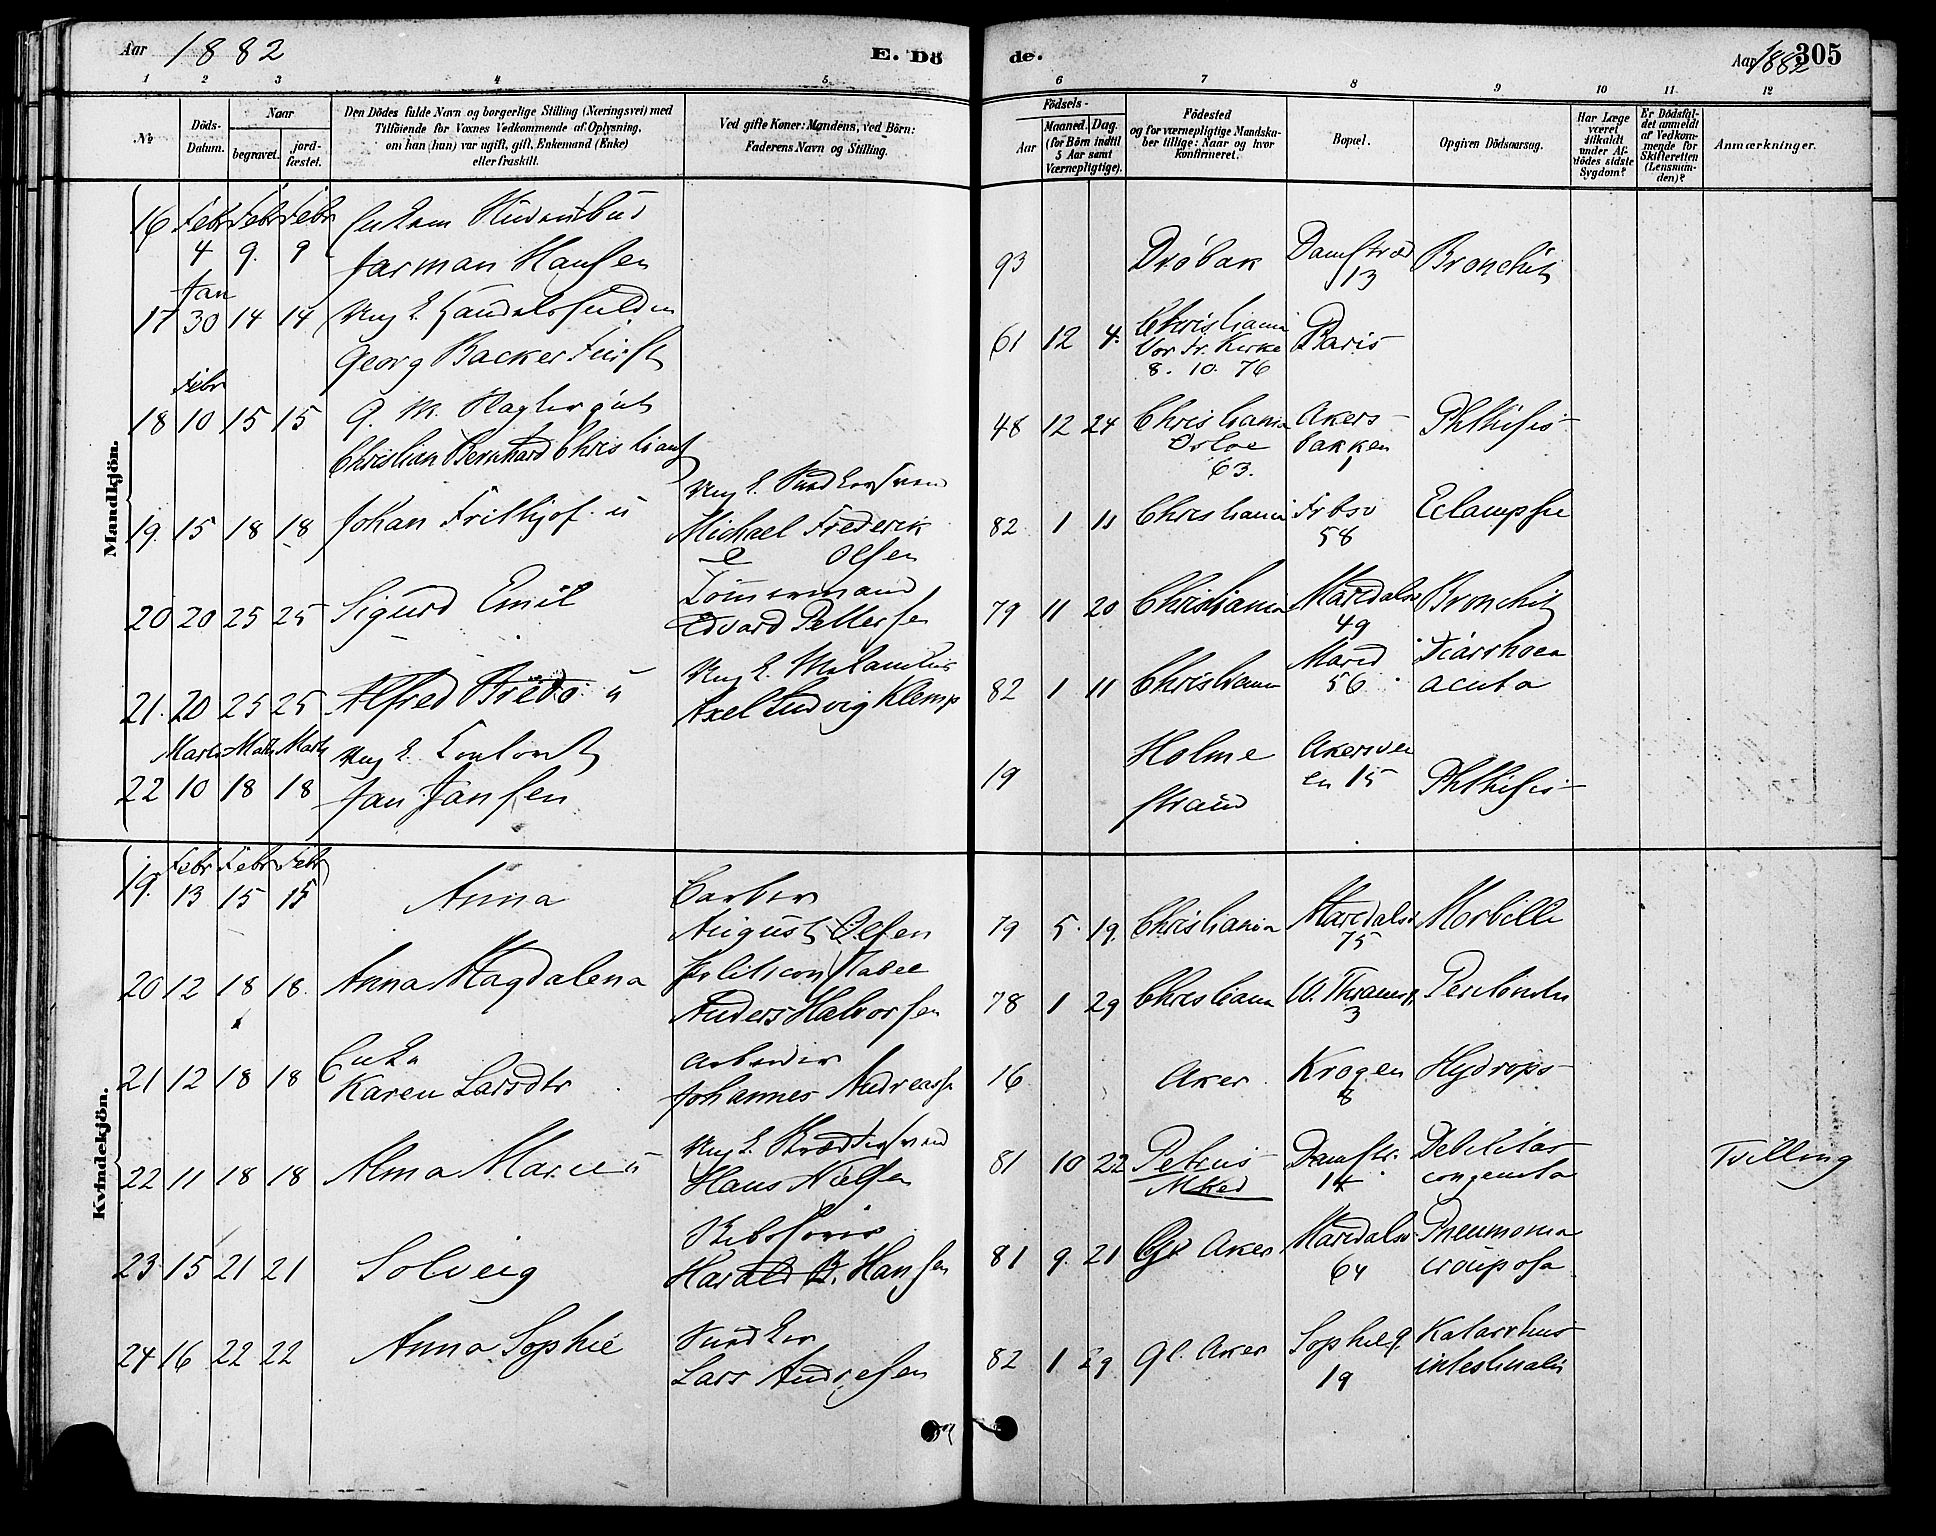 Aar 1882
E. Dö
de.
Aar 1882
305
1 2 3 4 5 6 7 8 9 10 11 12
No
Döds-
Datum.
Naar
begravet.
jord-
fæstet.
Den Dödes fulde Navn og borgerlige Stilling (Næringsvei) med
Tilföiende for Voxnes Vedkommende af Oplysning,
om han (hun) var ugift, gift, Enkemand (Enke)
eller fraskilt.
Ved gifte Koner: Mandens, ved Börn:
Faderens Navn og Stilling.
Födsels-
Aar
Maaned.
Dag.
(for Börn indtil
5 Aar samt
Værnepligtige).
Födested
og for værnepligtige Mandska-
ber tillige: Naar og hvor
konfirmeret.
Bopæl.
Opgiven Dödsaarsag.
Har Læge
været
tilkaldt
under Af-
dödes sidste
Sygdom?
Er Dödsfal-
det anmeldt
af Vedkom-
mende for
Skifteretten
(Lensman-
den)?
Anmærkninger.
Mandkjön.
16 Febr Febr Febr
4 9. 9 Jarman Hansen 93 Dröbak Damstræd 13 Bronchit
Jan
17 30 14 14 Ung E.
Georg Backer Fürst 61 12 4. Christiania
Vor Fr. Kirke
8. 10. 76
Paris
Febr
18 10 15 15
Christian Bernhard Christians 48 12 24 Christiania
Osloe
63.
Akers-
bakken
Phthisis
19. 15 18 18 Johan Frithjof u Ung E.
Michael Frederik
Olsen
82 1 11 Christiania
58
Eclampsie
20 20 25 25 Sigurd Emil Tömmermand
Edvard Pettersen
79 11 20 Christiania Maridalsv
49
Bronchit
21. 20 25 25 Alfred u Ung E.
Axel Ludvig Klemp
82 1 11 Christiania Marid
56
Diarrhoea
acuta
Marts Marts Marts Ung E.
22 10 18 18 Jan Jansen 19 Holme
strand
Akersvei
en 15
Phthisis
Kvindekjön.
19. Febr Febr Febr
13 15 15 Anna
August Olsen
79 5. 19. Christiania Maridalsv
75
Morbilli
20 12 18 18. Anna Magdalena Politiconstabel
Anders Halvorsen
78 1 29 Christiania W. Thranesg.
3
21 12 18 18 Enke
Karen Larsdtr Arbeider
Johannes Andreass
16 Aker Krogen
8
Hydrops
22 11 18 18 Alma Marie u Ung E.
Hans Nielsen
81 10 22 Petrus
Mked
Damstr.
14
Debilitas
congenita
Tvilling
23 15 21 21 Solveig
Harald B. Hansen
81 9. 21 Gl Aker Maridalsv
64
Pneumonia
crouposa
24 16 22 22 Anna Sophie Snedker
Lars Andresen
82 1 29 Gl. Aker Sophieg.
19
Katarrhus
intestinalis